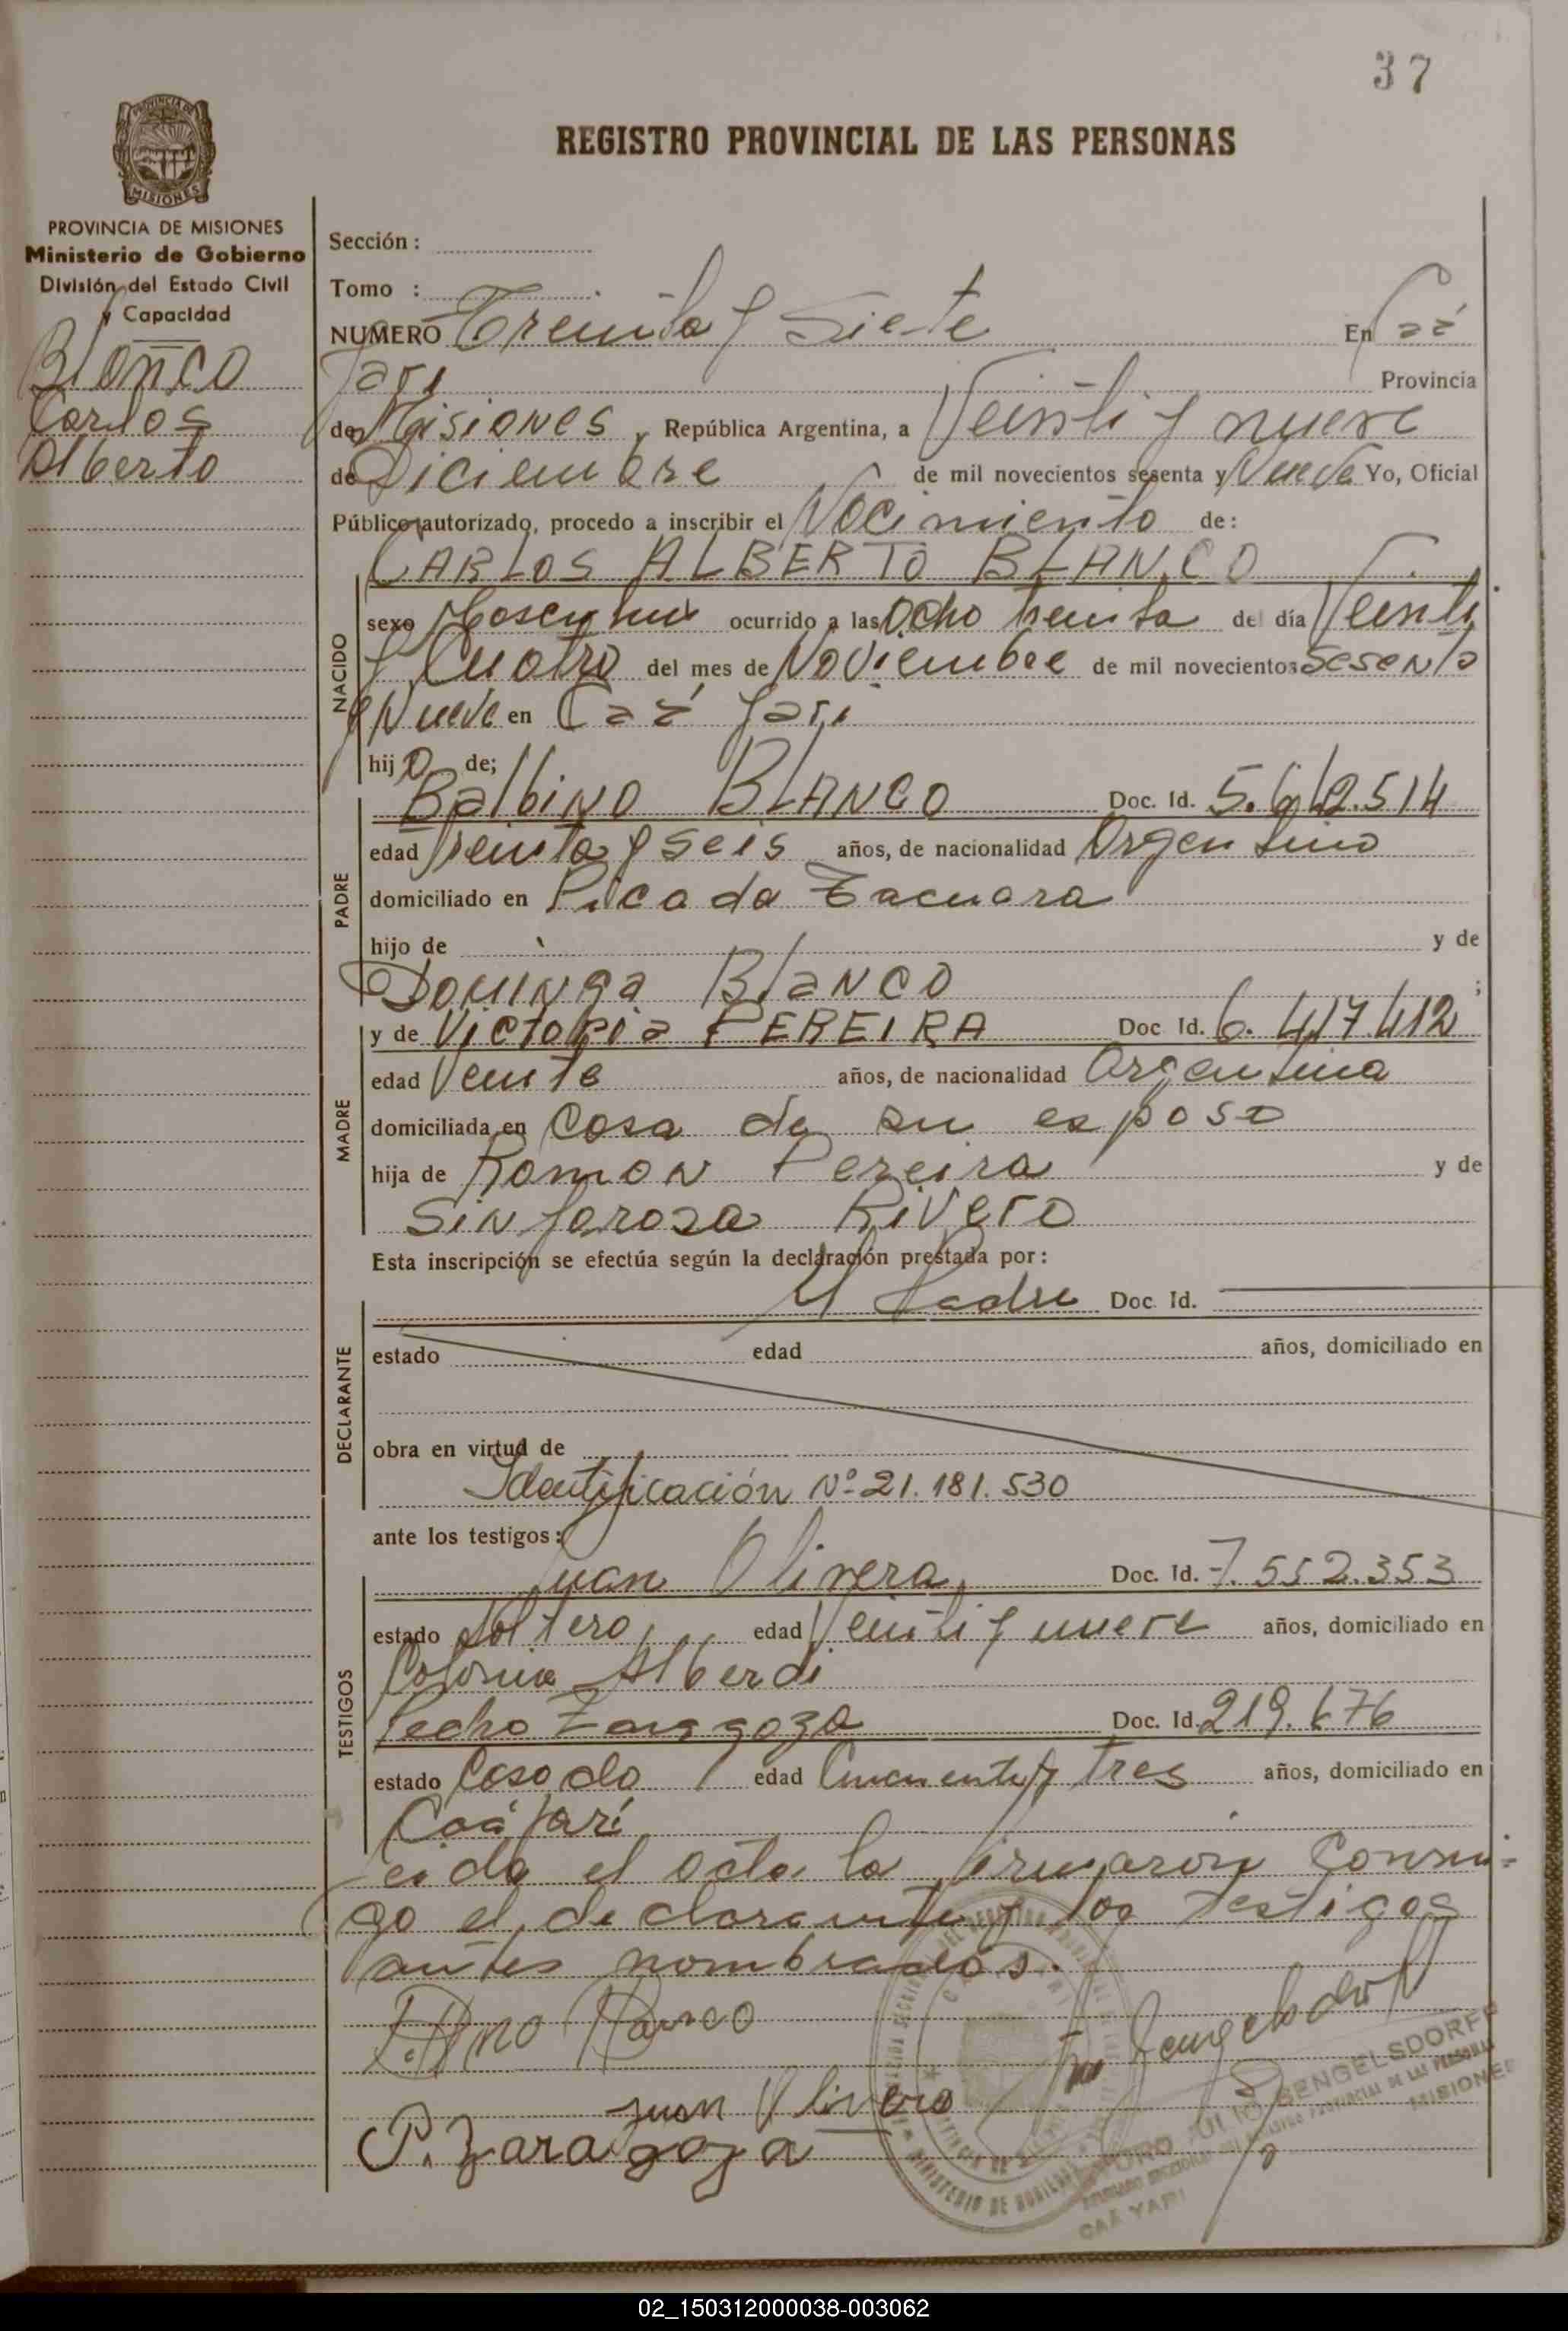 37
PROVINCIA DE MISIONES
REGISTRO PROVINCIAL DE LAS PERSONAS
PROVINCIA DE MISIONES
Ministerio de Gobierno
División del Estado Civil
y Capacidad
Blanco
Carlos
Alberto
Sección :
Tomo :
NUMERO Treinta y Siete En Caá
Yari Provincia
de Misiones, República Argentina, a Veinti y nueve
de Diciembre de mil novecientos sesenta y Nueve Yo, Oficial
Público autorizado, procedo a inscribir el Nacimiento de:
CARLOS ALBERTO BLANCO
NACIDO
sexo Masculino ocurrido a las Ocho treinta del día Veinti
y Cuatro del mes de Noviembre de mil novecientos Sesenta
y Nueve en Caá Yari
hijo de;
PADRE
Balbino BLANCO Doc. Id. 5.612.514
edad Treinta y seis años, de nacionalidad Argentino
domiciliado en Picada Tacuara
hijo de y de
Dominga Blanco ;
MADRE
y de Victoria PEREIRA Doc Id. 6.417.412
edad Veinte años, de nacionalidad Argentina
domiciliada en Casa de su esposo
hija de Ramon Pereira y de
Sinforosa Rivero
Esta inscripción se efectúa según la declaración prestada por:
DECLARANTE
El Padre Doc. Id.
estado edad años, domiciliado en
obra en virtud de
Identificación Nº 21.181.530
ante los testigos:
TESTIGOS
Juan Olivera Doc. Id. 7.552.353
estado Soltero edad Veinti y nueve años, domiciliado en
Colonia Alberdi
Pedro Zaragoza Doc. Id. 219.676
estado Casado edad Cincuenta y Tres años, domiciliado en
Caá Yarí
Leida el acta la firmaron Conmi-
go el declarante y los testigos
antes nombrados.
Juan Olivera
P. Zaragoza
BENGELSDORFF
MISIONES
CAA YARI
02_150312000038-003062